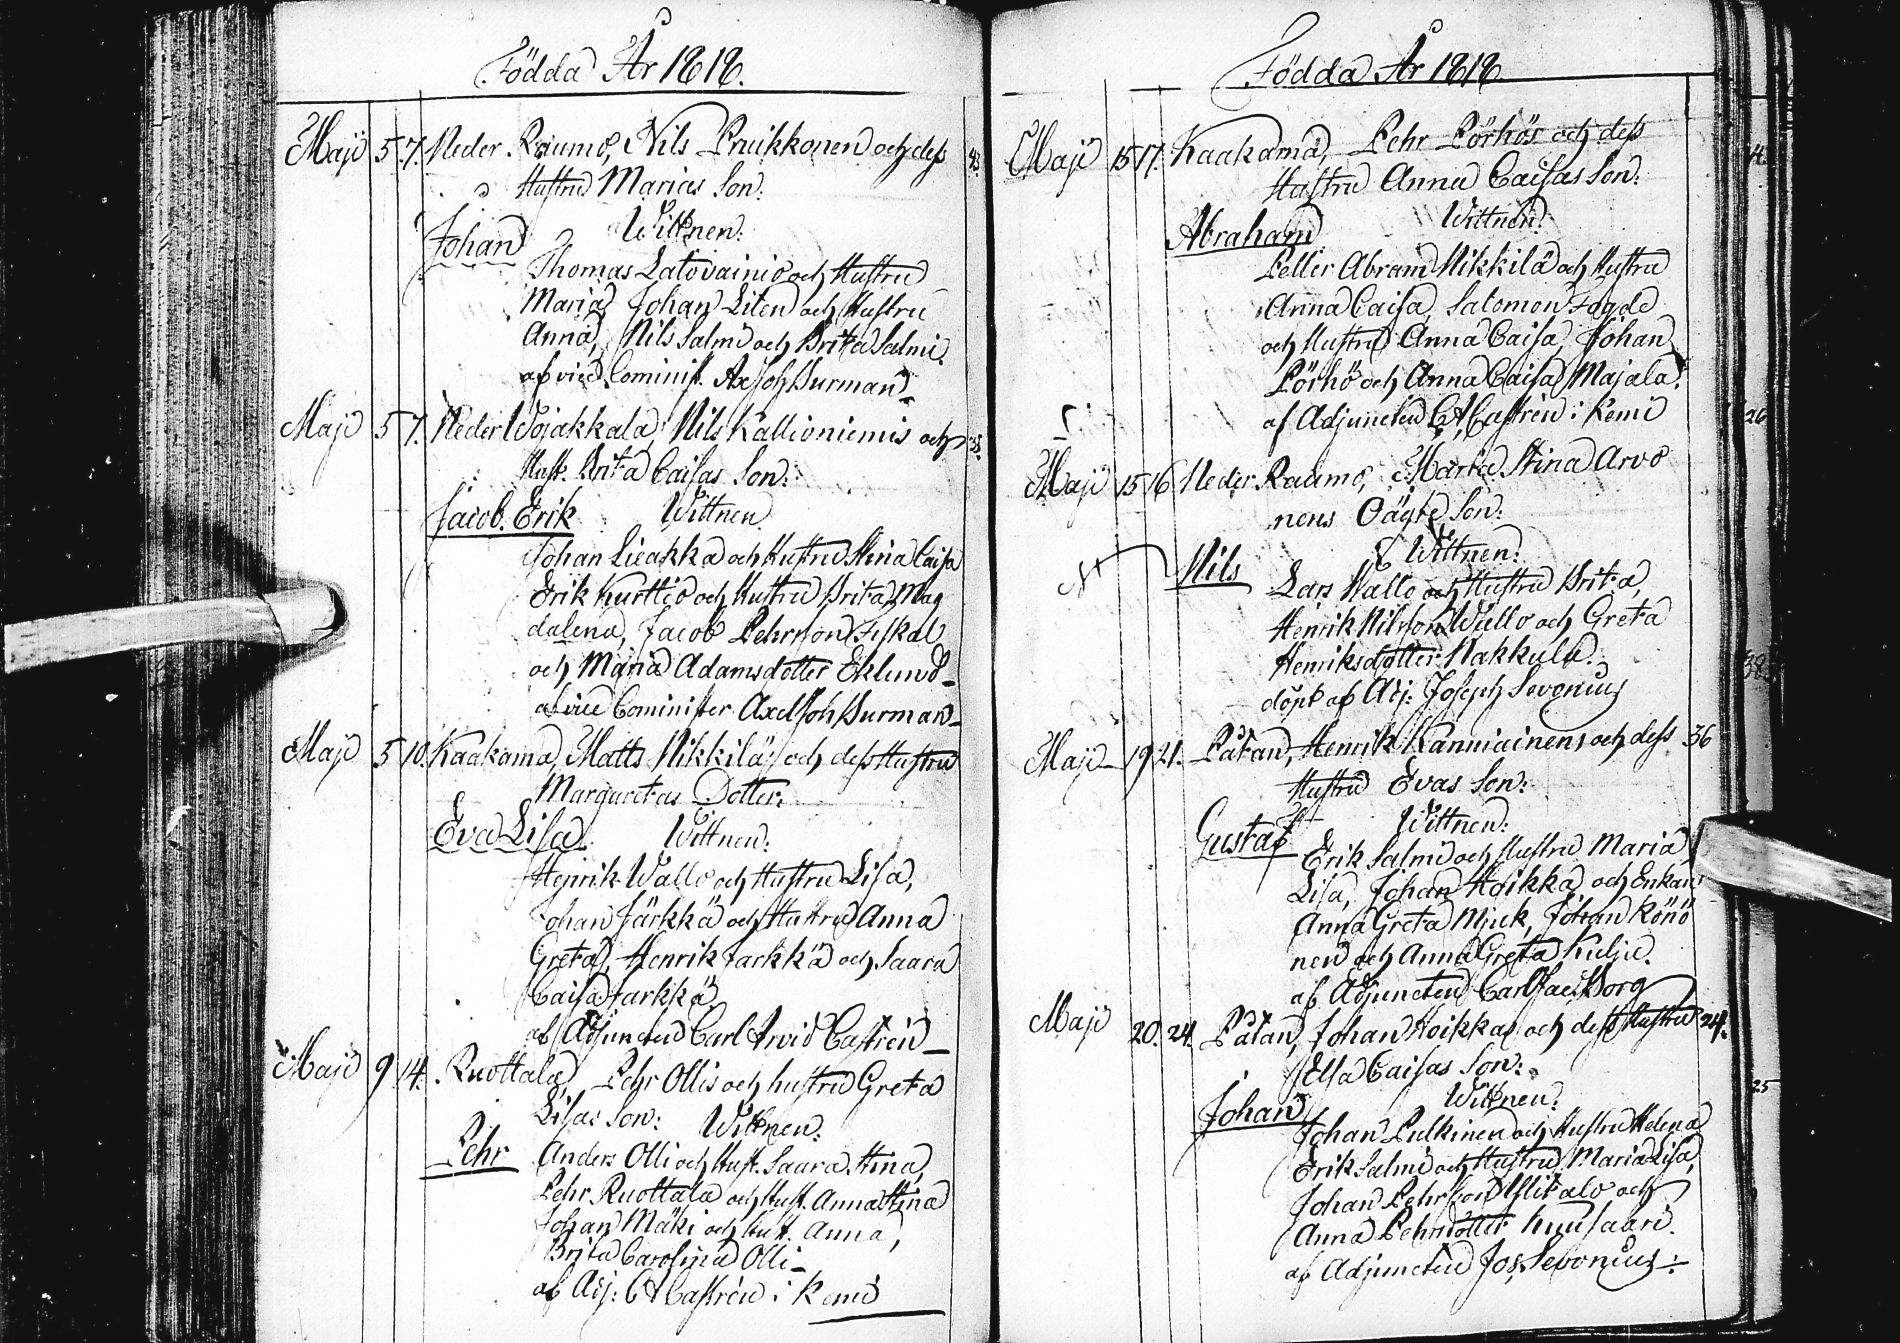 Födda År 1818.
Maji 5 7. Neder Raumo, Nils Pruikkonen och dess
Hustru Marias Son:
Johan Wittnen:
Thomas Latovainio och Hustru
Maria, Johan Liten och Hustru
Anna, Nils Salmi och Brita Salmi.
af vice Cominist. Ax Joh Burman
Maji 5 7. Neder Wojakkala, Nils Kallioniemis och 38.
Hust. Brita Caisas Son:
Jacob Erik Wittnen
Johan Lieakka och Hustru Stina Caisa
Erik Kurttio och Hustru Brita Mag
dalena, Jacob Pehrsson Fiskal
och Maria Adamsdotter Eklund
af vice Cominister Axel Joh Burman
Maji 5 10. Kaakama, Matts Nikkilä och dess Hustru
Margaretas Dotter:
Eva Lisa Wittnen:
Henrik Wallo och Hustru Lisa,
Johan Järkkä och Hustru Anna
Greta, Henrik Jarkkä och Saara
Caisa Jarkkä
af Adjuncten Carl Arvid Castrén
Maji 9 14. Ruottala, Pehr Ollis och hustru Greta
Lisas Son: Wittnen:
Pehr Anders Olli och Hust. Saara Stina,
Pehr Ruottala och Hust. Anna Stina
Johan Mäki och Hust. Anna,
Brita Carolina Olli
af Adj: C A Castrén i Kemi
Födda År 1818
Maji 15 17. Kaakama, Pehr Pörhös och dess
Hustru Anna Caisas Son:
Abraham Wittnen:
Peller Abram Nikkilä och Hustru
Anna Caisa, Salomon Fagde
och Hustru Anna Caisa, Johan
Pörhö och Anna Caisa Majala.
af Adjuncten C A Castrén i Kemi
26
Maji 15 16 Neder Raumo, Maria Stina Arvo
nens Oägte Son:
Nils Wittnen:
Lars Kallo och Hustru Brita,
Henrik Nilsson Wallo och Greta
Henriksdotter Nakkula.
döpt af Adj: Joseph Sevonius
38
Maji 19 21. Påtan, Henrik Kanniainens och dess 36
Hustru Evas Son:
Gustaf Wittnen:
Erik Salmi och Hustru Maria
Lisa, Johan Hoikka och Enkan
Anna Greta Mjuk, Johan Könö
nen och Anna Greta Kulju.
af Adjuncten Carl Jac. Borg
Maji 20. 24. Påtan, Johan Hoikkas och dess Hustru 24.
Elsa Caisas Son:
Johan Wittnen:
25
Johan Pulkinen och Hustru Helena
Erik Salmi och Hustru Maria Lisa,
Johan Pehrsson Ylitalo och
Anna Pehrsdotter Kuusaari.
af Adjuncten Jos. Sevonius